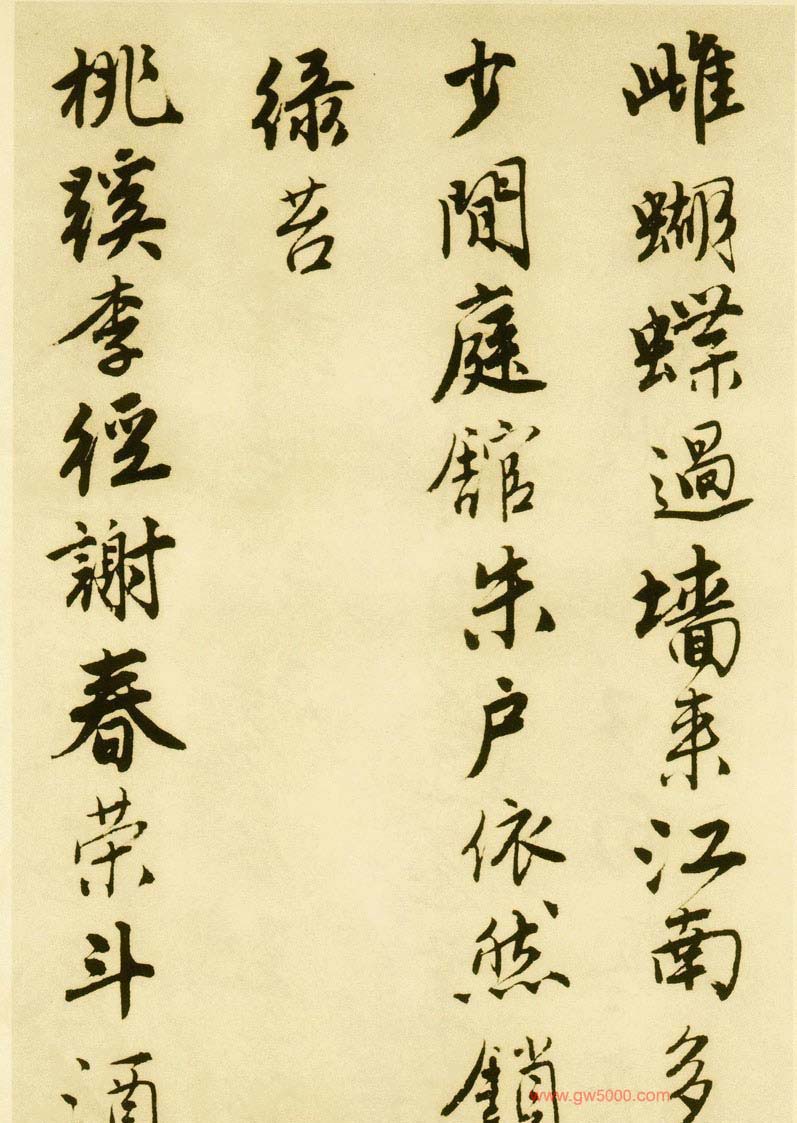 雌蝴蝶過墻来江南多
少閒庭館朱户依然鎖
緑苔
桃蹊李徑謝春荣斗酒
www.gw5000.com